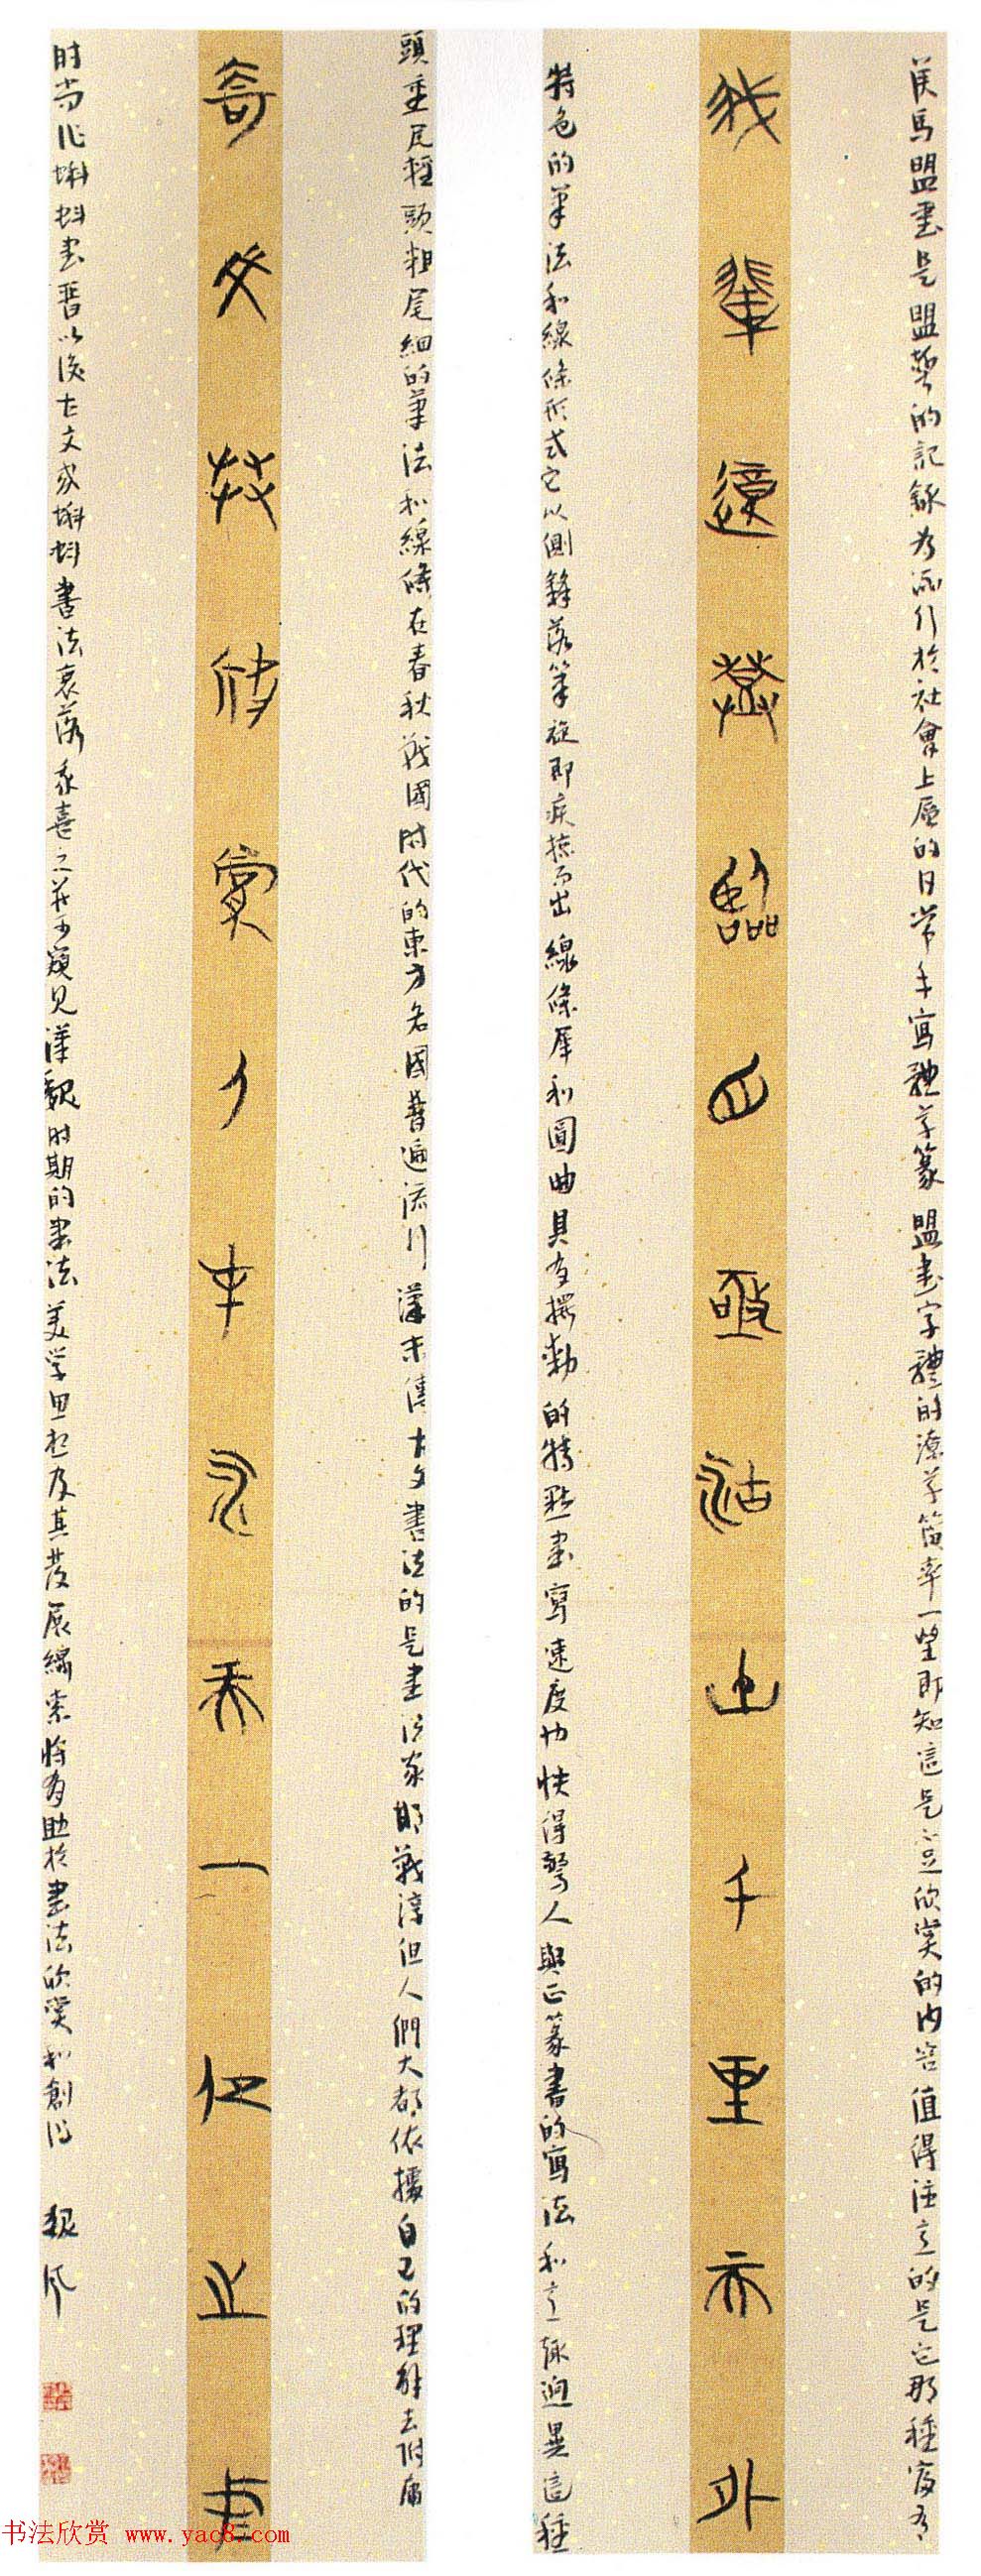 侯馬盟書是盟誓的記錄為流行於社會上層的日常手寫體草篆盟書字體的潦草簡率一望即知這是不足欣賞的內容值得注意的是它那種富有
我輩遠臨敬千里亦外
特色的筆法和線條形式它以側鋒落筆旋即疾掠而出線條犀利圓曲具有擺動的特點書寫速度也快得驚人與正篆書的寫法和意趣迥異這種
頭重尾輕頭粗尾細的筆法和線條在春秋戰國時代的東方各國普遍流行漢末傳古文書法的是書法家邯鄲淳但人們大都依據自己的理解去附庸
奇文人中一
时尚作蝌蚪書晉以後古文或蝌蚪書法衰落喜之并可窺見漢魏时期的書法美学思想及其發展線索將有助於書法欣賞和創作 魏风
书法欣赏 www.yac8.com